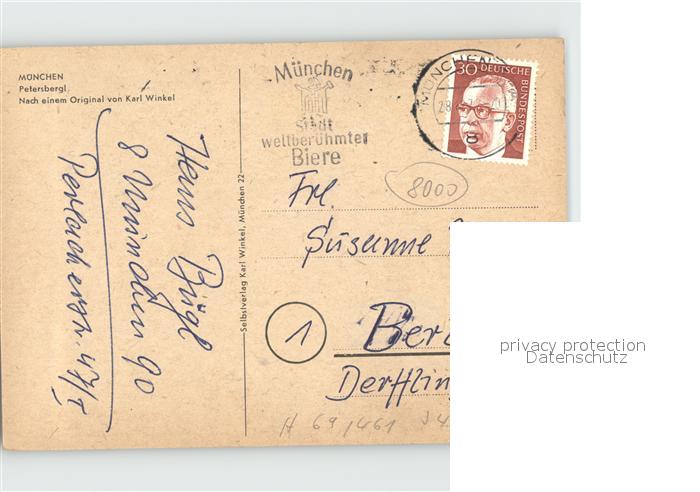 MÜNCHEN
Petersbergl
Nach einem Original von Karl Winkel
München
Stadt
weltberühmter
Biere
MÜNCHEN
28
8
30 DEUTSCHE
BUNDESPOST
8000
Frl.
Susanne
1
Berl
Derffling
H 69/461
Selbstverlag Karl Winkel, München 22
Hans Bügl
8 München 90
Perlacherstr. 47/I
privacy protection
Datenschutz